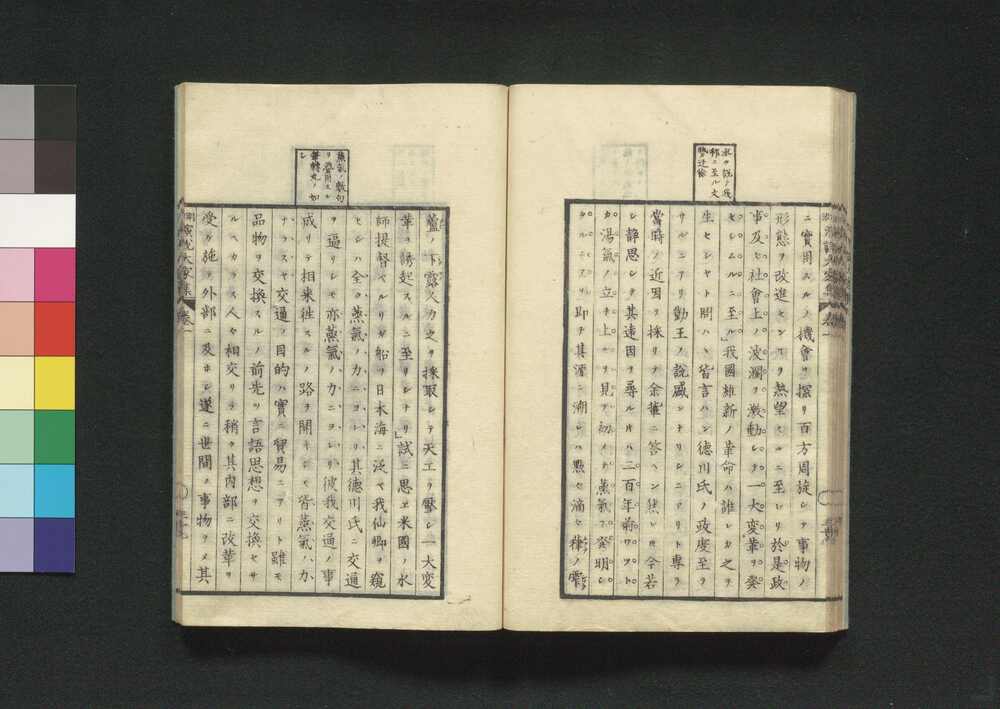 ニ實用スルノ機會ヲ探リ百方周旋シテ事物ノ
形態ヲ改進センヿヲ熱望スルニ至レリ於是政
事及ヒ社會上ノ波瀾ヲ激動シテ一大変革ヲ発
セシムルニ至ル」我國維新ノ革命ハ誰レカ之ヲ
生セシヤト問ハヽ皆言ハン德川氏ノ政度至ラ
サルニアリ勤王ノ說盛ンナリシニアリト專ラ
當時ノ近因ヲ採リテ余輩ニ答ヘン然レ𪜈今若
シ靜思シテ其遠因ヲ尋ルハ二百年前ワット
カ湯氣ノ立チ上ルヲ見テ初メテ蒸氣ヲ発明シ
タルニアリ即チ其源ニ溯レハ點々滴々種ノ
露ノ下露人力之ヲ採取シテ天工ヲ壓シ一大変
革ヲ誘起スルニ至リシナリ」試ニ思ヱ米國ノ水
師提督ペルリガ船ヲ日本海ニ泛ベ我仙鄉ヲ窺
ヒシハ全ク蒸氣ノ力ニヨレリ其德川氏ニ交通
ヲ逼リシモ亦蒸氣ノ力ニヨレリ彼我交通ノ事
成リテ相来往スルノ路ヲ開キシモ皆蒸氣ノ力
ナラスヤ交通ノ目的ハ實ニ貿易ニアリト雖モ
品物ヲ交換スルノ前先ツ言語思想ヲ交換セサ
ルヘカラス人々相交リテ稍々其内部ニ改革ヲ
受ケ施テ外部ニ及ホシ遂ニ世間ノ事物ヲメ其
蒸氣ノ數句
ヲ疊用スル
轉丸ノ如
シ
演說大家集
卷一